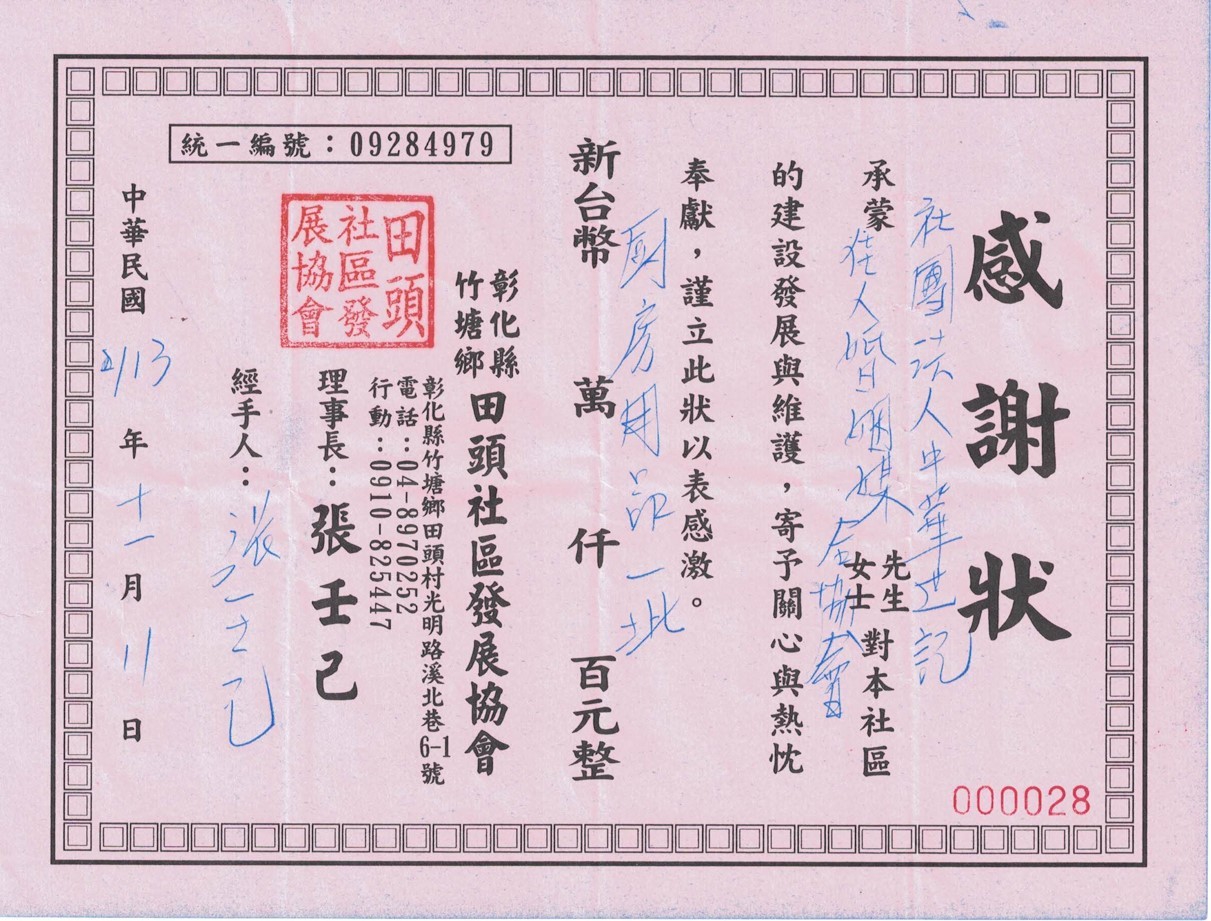 感謝狀
社團法人中華世記
承蒙
佳人婚姻媒合協會
先生
女士
對本社區
的建設發展與維護，寄予關心與熱忱
奉獻，謹立此狀以表感激。
廚房用品一批
新台幣 萬 仟 百元整
彰化縣
竹塘鄉
田頭社區發展協會
彰化縣竹塘鄉田頭村光明路溪北巷6-1號
電話：04-8970252
行動：0910-825447
理事長：張壬己
經手人：張壬己
田頭
社區發
展協會
統一編號：09284979
中華民國 年 十一月 11日
000028